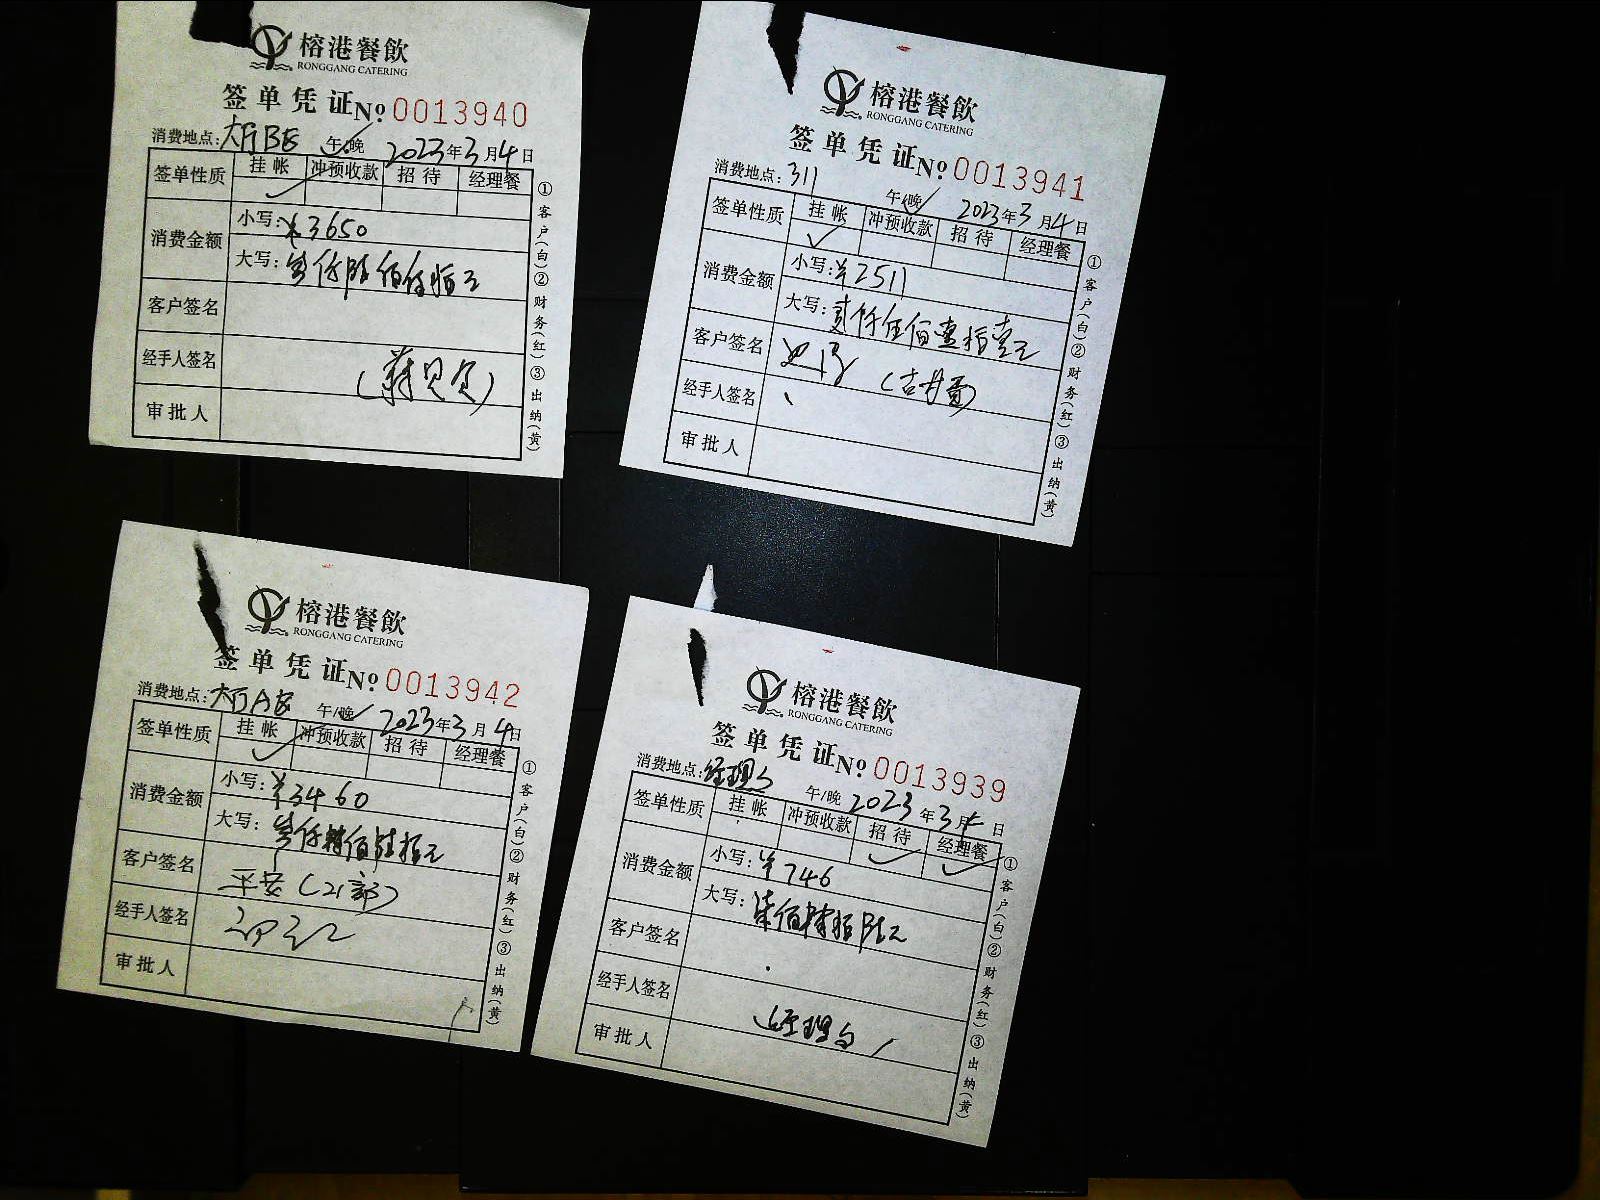 榕港餐飲
RONGGANG CATERING
签单凭证 № 0013940
消费地点: 大厅B区 午/晚 2023年3月4日
签单性质 挂帐 冲预收款 招待 经理餐
消费金额 小写: ¥3650
大写: 叁仟陆佰伍拾元
客户签名
经手人签名
审批人
①客户(白)②财务(红)③出纳(黄)
榕港餐飲
RONGGANG CATERING
签单凭证 № 0013941
消费地点: 311 午/晚 2023年3月4日
签单性质 挂帐 冲预收款 招待 经理餐
消费金额 小写: ¥2511
大写: 贰仟伍佰壹拾壹元
客户签名
经手人签名
审批人
①客户(白)②财务(红)③出纳(黄)
榕港餐飲
RONGGANG CATERING
签单凭证 № 0013942
消费地点: 大厅A区 午/晚 2023年3月4日
签单性质 挂帐 冲预收款 招待 经理餐
消费金额 小写: ¥3460
大写: 叁仟肆佰陆拾元
客户签名 平安(21部)
经手人签名
审批人
①客户(白)②财务(红)③出纳(黄)
榕港餐飲
RONGGANG CATERING
签单凭证 № 0013939
消费地点: 经理 午/晚 2023年3月4日
签单性质 挂帐 冲预收款 招待 经理餐
消费金额 小写: ¥746
大写: 柒佰肆拾陆元
客户签名
经手人签名 经理
审批人
①客户(白)②财务(红)③出纳(黄)